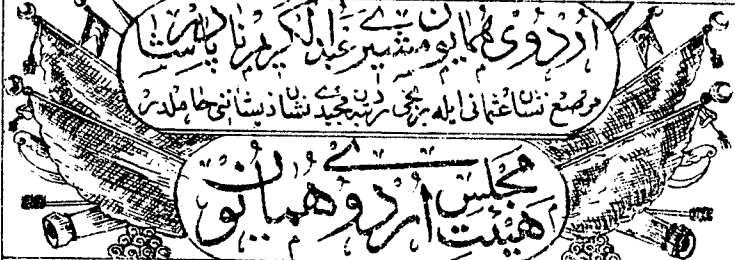 اردوی همایون مشیری عبدالکریم نادر پاشا
مرصع نشان عثمانی ایله برنجی رتبه‌دن مجیدی نشان ذیشاننی حاملدر
مجلس هیئت اردوی همایون